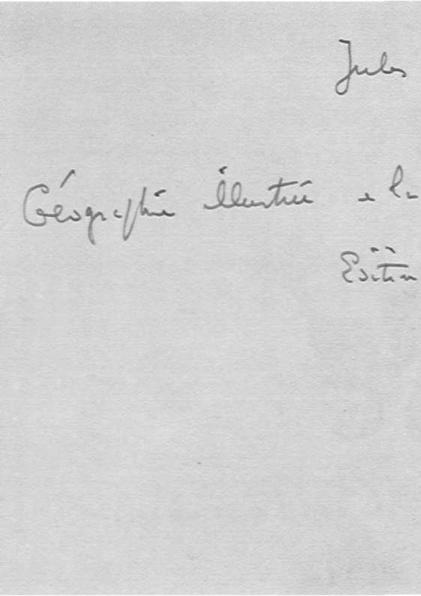 Jules
Géographie illustrée
Edition